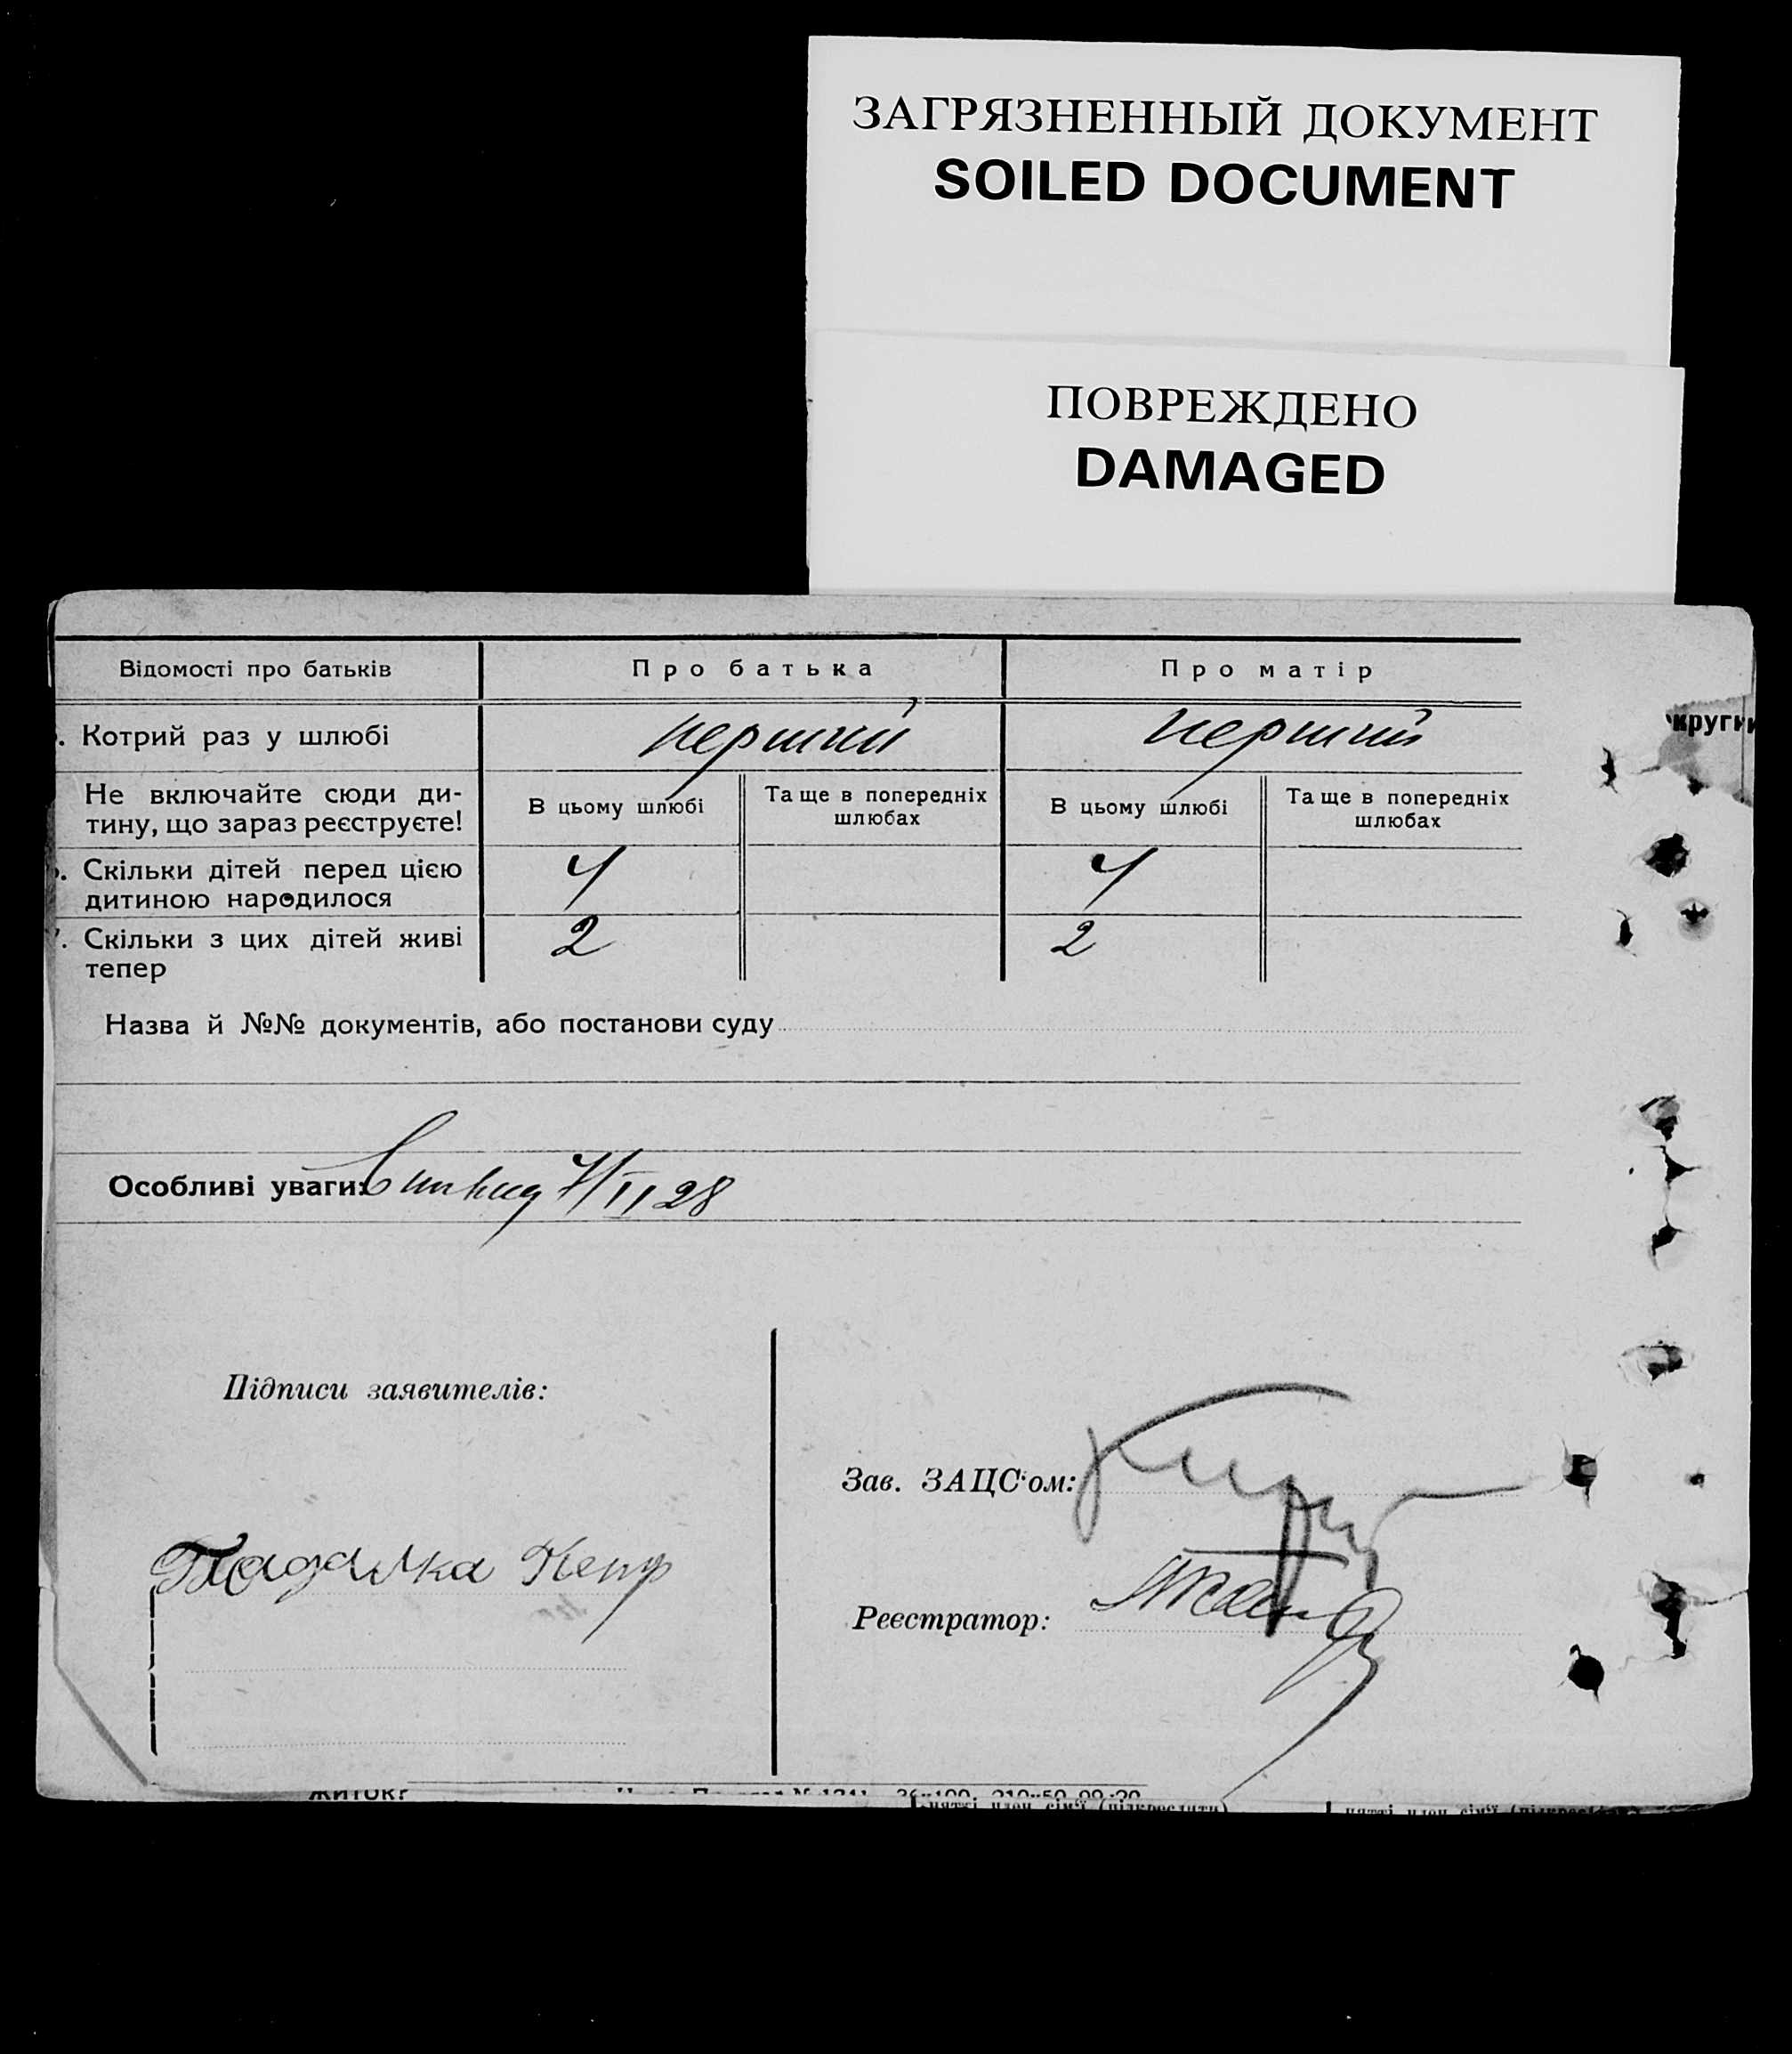 ЗАГРЯЗНЕННЫЙ ДОКУМЕНТ
SOILED DOCUMENT
ПОВРЕЖДЕНО
DAMAGED
Відомості про батьків Про батька Про матір
Котрий раз у шлюбі перший перший
круги
Не включайте сюди ди-
тину, що зараз реєструєте!
В цьому шлюбі Та ще в попередніх
шлюбах
В цьому шлюбі Та ще в попередніх
шлюбах
Скільки дітей перед цією
дитиною народилося 4 4
Скільки з цих дітей живі
тепер 2 2
Назва й №№ документів, або постанови суду
Особливі уваги: 7/II 28
Підписи заявителів:
Зав. ЗАЦС'ом:
Падалка
Реєстратор: